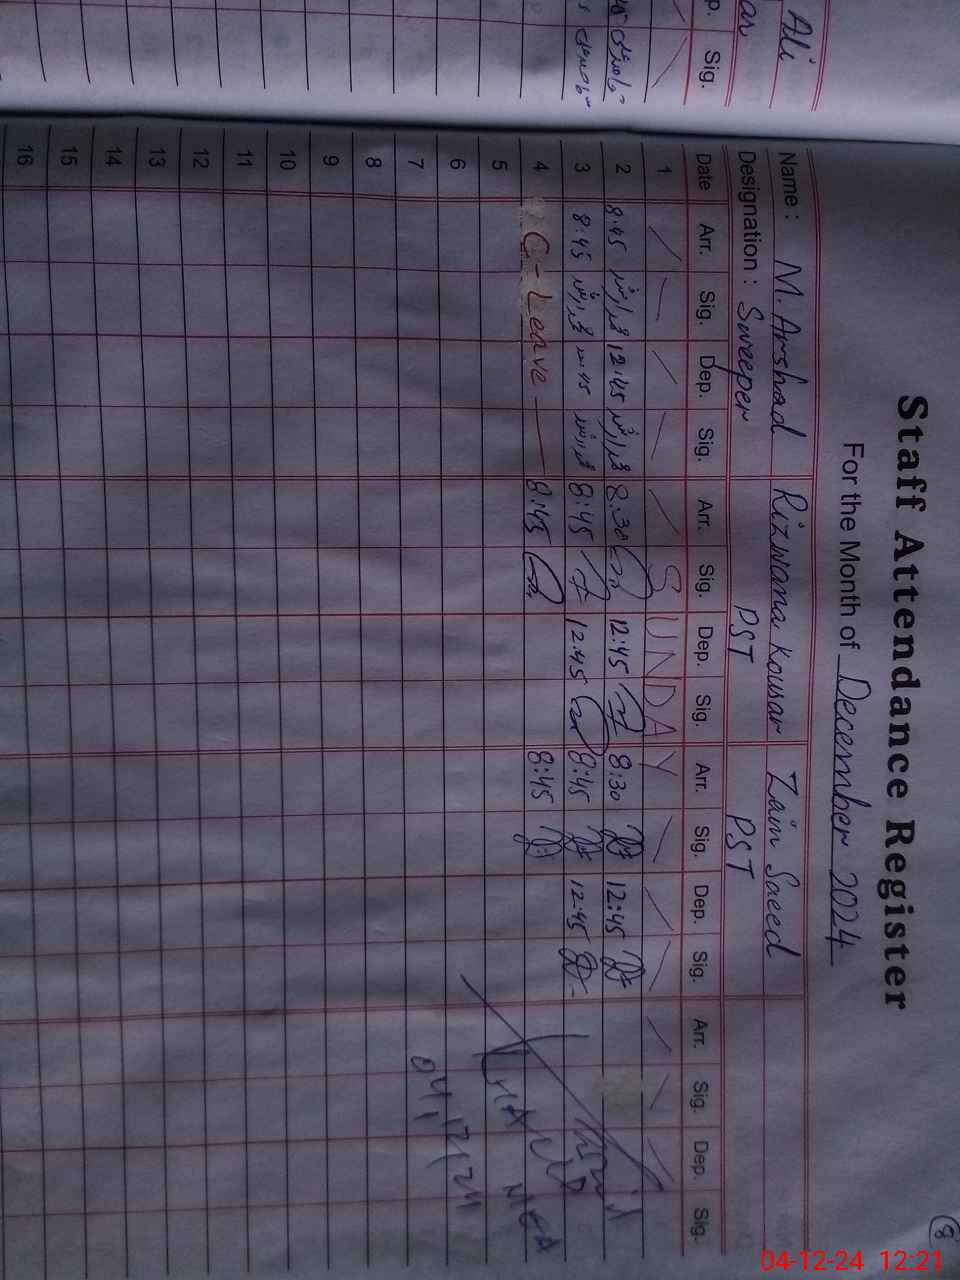 Ali
Sig.
8
Staff Attendance Register
For the Month of December 2024
Name : M. Arshad Rizwana Kousar Zain Saeed
Designation : Sweeper PST PST
Date Arr. Sig. Dep. Sig. Arr. Sig. Dep. Sig. Arr. Sig. Dep. Sig. Arr. Sig. Dep. Sig.
1 SUNDAY
2 8:45 12:45 8:30 12:45 8:30 12:45
3 8:45 12:45 8:45 12:45 8:45 12:45
4 C-Leave 8:45 8:45
5
6
7
8
9
10
11
12
13
14
15
16
04,12,24
04-12-24 12:21